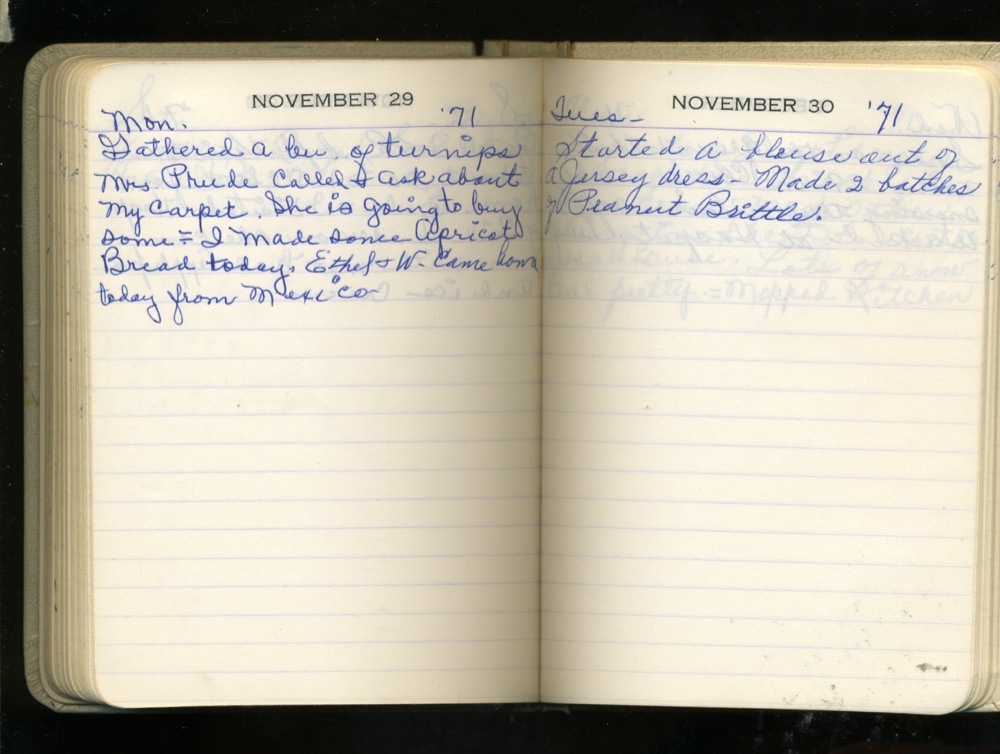 NOVEMBER 29
Mon. '71
Gathered a bu. of turnips
Mrs Prude called & ask about
my carpet. She is going to buy
some = I made some Apricot
Bread today. Ethel & W. came home
today from Mexico-
NOVEMBER 30
Tues- '71
Started a blouse out of
a Jersey dress - Made 2 batches
of Peanut Brittle.